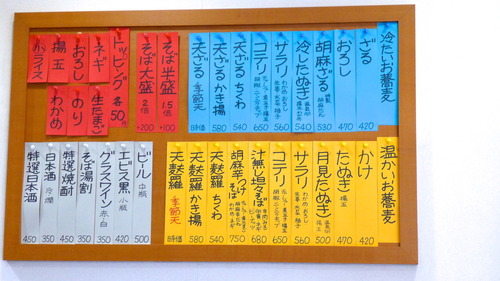 冷たいお蕎麦
ざる 420
おろし 470
胡麻ざる 530
冷したぬき 540
サラリ 560
コテリ 640
天ざる ちくわ 540
天ざる かき揚 580
天ざる 季節天 時価
そば半盛 1.5倍 +100
そば大盛 2倍 +200
トッピング 各50円
ネギ
生たまご
おろし
のり
揚玉
わかめ
小ライス
温かいお蕎麦
かけ 420
たぬき 揚玉 470
月見たぬき 500
サラリ 560
コテリ 650
汁無し坦々そば 680
胡麻辛つけそば 750
天麩羅 ちくわ 540
天麩羅 かき揚 580
天麩羅 季節天 時価
ビール 中瓶 500
エビス黒 小瓶 420
グラスワイン 赤・白 350
そば湯割 350
特選焼酎 450
日本酒 冷/燗 350
特選日本酒 450